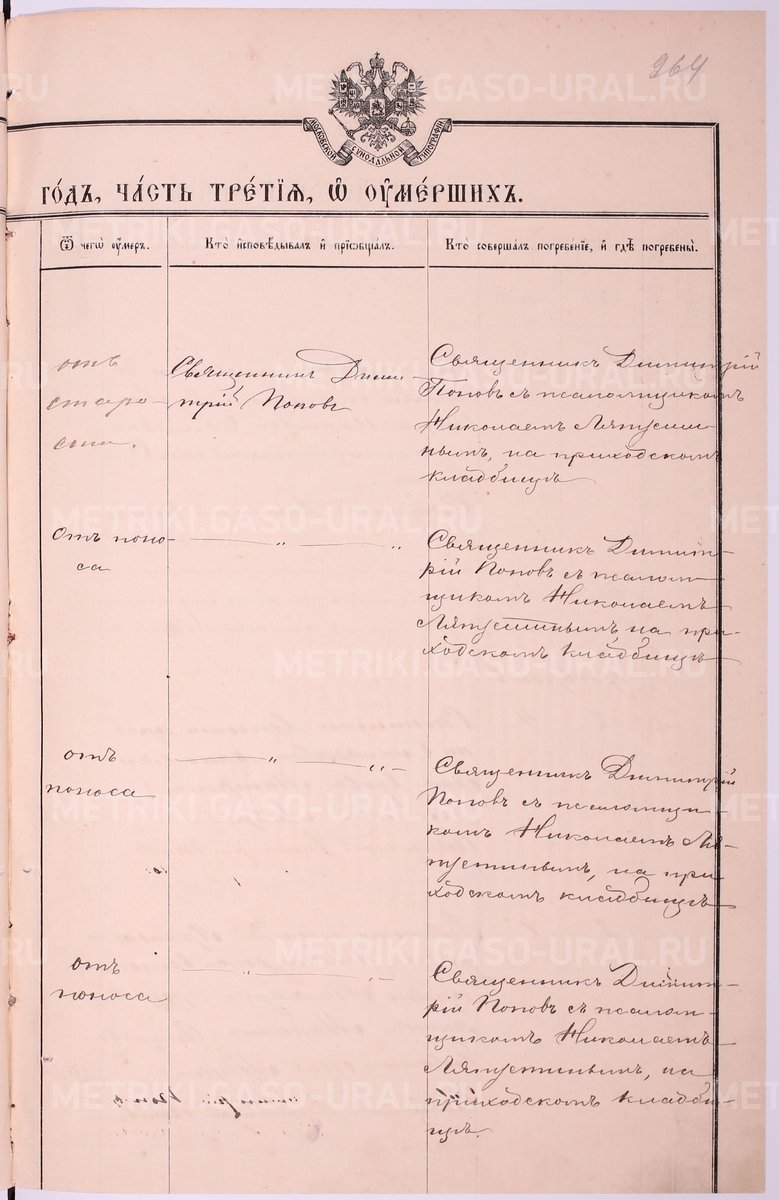 264
МОСКОВСКОЙ СѴНОДАЛЬНОЙ ТИПОГРАФІИ
ГО́ДЪ, ЧА́СТЬ ТРЕ́ТІѦ, Ѡ҆ ОУ҆МЕ́РШИХЪ.
Ѿ чегѡ̀ оу҆́меръ.
Кто̀ и҆сповѣ́дывалъ и҆ прїѡбща́лъ.
Кто̀ соверша́лъ погребе́нїе, и҆ гдѣ̀ погребены̀.
отъ
старо-
сти.
Священникъ Дими-
трій Поповъ
Священникъ Димитрій
Поповъ съ псаломщикомъ
Николаемъ Ляпусти-
нымъ, на приходскомъ
кладбищѣ
Отъ поно-
са
— „ — „
Священникъ Димит-
рій Поповъ съ псалом-
щикомъ Николаемъ
Ляпустинымъ, на при-
ходскомъ кладбищѣ
отъ
поноса
— „ — „ —
Священникъ Димитрій
Поповъ съ псаломщи-
комъ Николаемъ Ля-
пустинымъ, на при
ходскомъ кладбищѣ
отъ
поноса
— „ — „ —
Священникъ Димит-
рій Поповъ съ псалом-
щикомъ Николаемъ
Ляпустинымъ, на
приходскомъ кладби-
щѣ.
METRIKI.GASO-URAL.RU